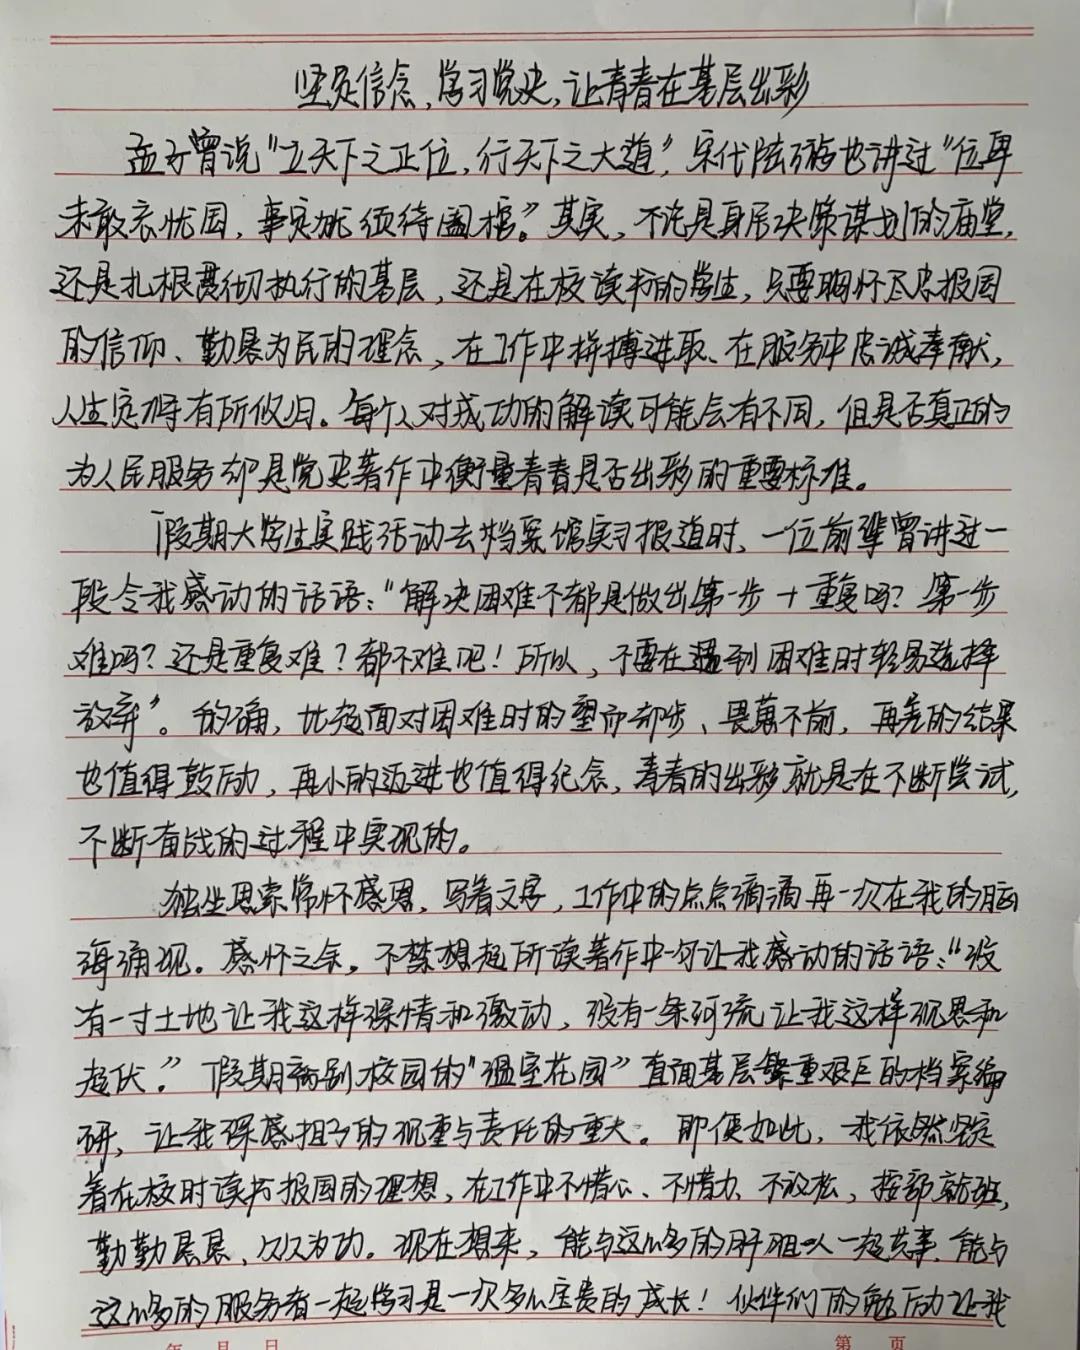 坚定信念,学习党史,让青春在基层出彩
孟子曾说"立天下之正位,行天下之大道",宋代陆游也讲过"位卑
未敢忘忧国,事定犹须待阖棺。"其实,不论是身居决策谋划的庙堂,
还是扎根贯彻执行的基层,还是在校读书的学生,只要胸怀尽忠报国
的信仰、勤恳为民的理念,在工作中拼搏进取、在服务中忠诚奉献,
人生定将有所依归。每个人对成功的解读可能会有不同,但是否真正的
为人民服务却是党史著作中衡量青春是否出彩的重要标准。
假期大学生实践活动去档案馆实习报道时,一位前辈曾讲过一
段令我感动的话语:"解决困难不都是做出第一步+重复吗?第一步
难吗?还是重复难?都不难吧!所以,不要在遇到困难时轻易选择
放弃"。的确,比起面对困难时的望而却步、畏葸不前,再差的结果
也值得鼓励,再小的迈进也值得纪念,青春的出彩就是在不断尝试,
不断奋战的过程中实现的。
独坐思索常怀感恩,写着文字,工作中的点点滴滴再一次在我的脑
海涌现。感怀之余,不禁想起所读著作中一句让我感动的话语:"没
有一寸土地让我这样深情和激动,没有一条河流让我这样沉思和
起伏。"假期离别校园的"温室花园"直面基层繁重艰巨的档案编
研,让我深感担子的沉重与责任的重大。即便如此,我依然坚定
着在校时读书报国的理想,在工作中不惜心、不惜力、不放松,按部就班,
勤勤恳恳、久久为功。现在想来,能与这么多的开阻人一起共事、能与
这么多的服务者一起学习是一次多么宝贵的成长!伙伴们的勉励让我
年 月 日 第 页